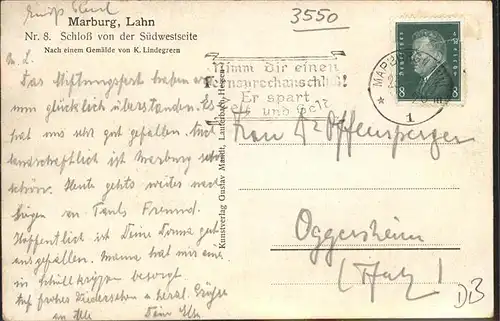 3550
Marburg, Lahn
Nr. 8. Schloß von der Südwestseite
Nach einem Gemälde von K. Lindegreen
M. L.
Das Stiftungsfest haben wir
nun glücklich überstanden. Es
hat uns sehr gut gefallen. Auch
landschaftlich ist Marburg sehr
schön. Heute gehts weiter nach
an Pauls Freund.
Hoffentlich ist Deine gut
ausgefallen. Mama hat mir
in besorgt.
Auf frohes Wiedersehen u. herzl. Grüße
an alle Dein
Kunstverlag Gustav Mandt, Lauterbach, Hessen
Nimm dir einen
Fernsprechanschluß!
Er spart
Zeit und Geld
MARBURG
1
DEUTSCHES REICH
8 8
Frau Dr Pöffensperger
Oggersheim
(Pfalz)
DB